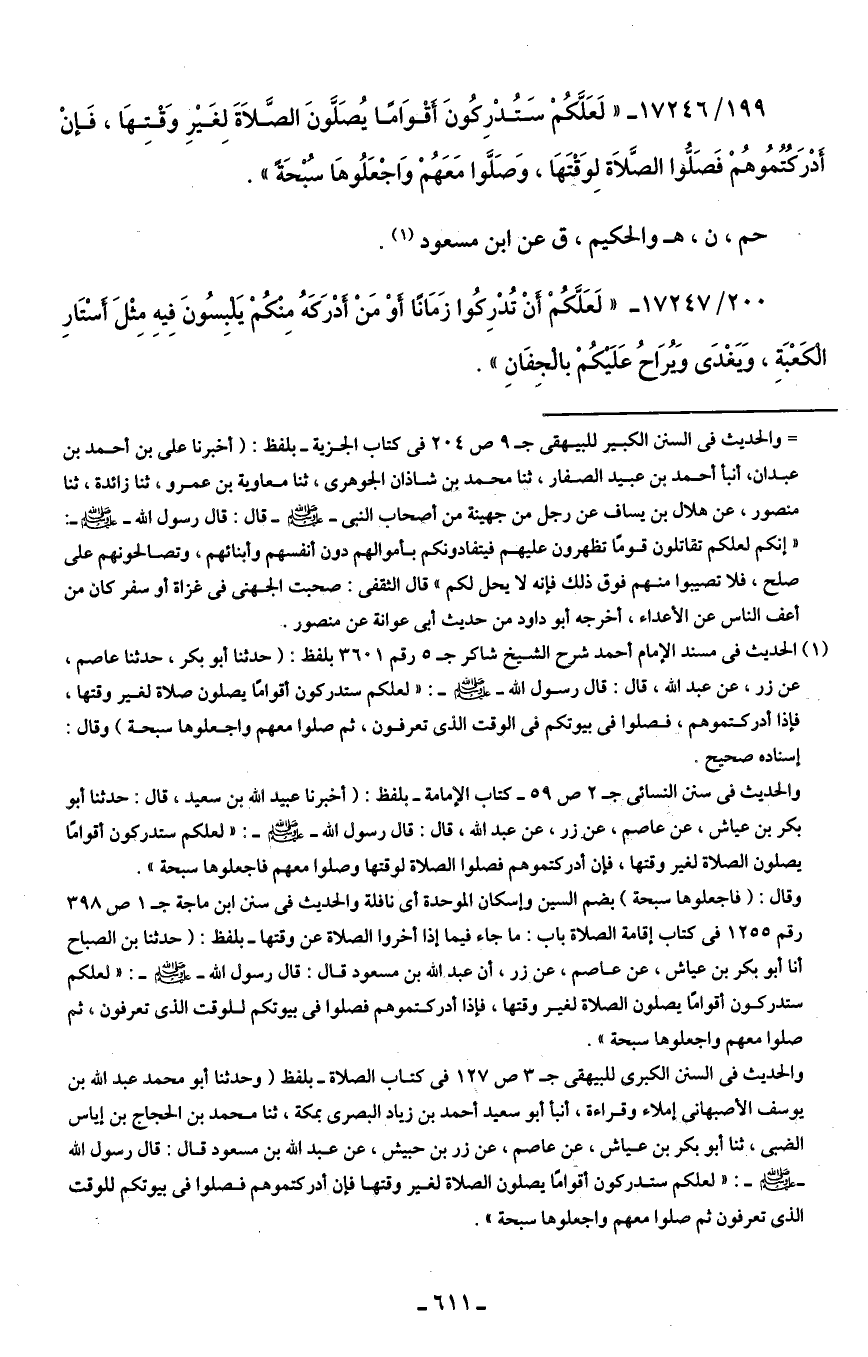 ١٧٢٤٦/١٩٩ـ « لَعَلَّكُمْ سَتُدْرِكُونَ أَقْوَامًا يُصَلُّونَ الصَّلاَةَ لِغَيْرِ وَقْتِهَا ، فَإِنْ
أَدْرَكْتُمُوهُمْ فَصَلُّوا الصَّلاَةَ لِوَقْتَهَا ، وَصَلَّوا مَعَهُمْ وَاجْعَلُوهَا سُبْحَةً » .
حم ، ن ، هـ والحكيم ، ق عن ابن مسعود (١) .
١٧٢٤٧/٢٠٠ـ « لَعَلَّكُمْ أَنْ تُدْرِكُوا زَمَانًا أَوْ مَنْ أَدْرَكَهُ مِنْكُمْ يَلْبِسُونَ فِيهِ مِثْلَ أَسْتَارِ
الْكَعْبَةِ ، وَيَغْدَى وَيُرَاحُ عَلَيْكُمْ بالْجِفَانِ » .
= والحديث فى السنن الكبير للبيهقى جـ ٩ ص ٢٠٤ فى كتاب الجزية ـ بلفظ : ( أخبرنا على بن أحمد بن
عبدان، أنبأ أحمد بن عبيد الصفار ، ثنا محمد بن شاذان الجوهرى ، ثنا معاوية بن عمرو ، ثنا زائدة ، ثنا
منصور ، عن هلال بن يساف عن رجل من جهينة من أصحاب النبى ـ ﷺ ـ قال : قال رسول الله ـ ﷺ ـ:
« إنكم لعلكم تقاتلون قومًا تظهرون عليهم فيتفادونكم بأموالهم دون أنفسهم وأبنائهم ، وتصالحونهم على
صلح ، فلا تصيبوا منهم فوق ذلك فإنه لا يحل لكم » قال الثقفى : صحبت الجهنى فى غزاة أو سفر كان من
أعف الناس عن الأعداء ، أخرجه أبو داود من حديث أبى عوانة عن منصور .
(١) الحديث فى مسند الإمام أحمد شرح الشيخ شاكر جـ ٥ رقم ٣٦٠١ بلفظ : ( حدثنا أبو بكر ، حدثنا عاصم ،
عن زر ، عن عبد الله ، قال : قال رسول الله ـ ﷺ ـ : « لعلكم ستدركون أقوامًا يصلون صلاة لغير وقتها ،
فإذا أدركتموهم ، فصلوا فى بيوتكم فى الوقت الذى تعرفون ، ثم صلوا معهم واجعلوها سبحة ) وقال :
إسناده صحيح .
والحديث فى سنن النسائى جـ ٢ ص ٥٩ ـ كتاب الإمامة ـ بلفظ : ( أخبرنا عبيد الله بن سعيد ، قال : حدثنا أبو
بكر بن عياش ، عن عاصم ، عن زر ، عن عبد الله ، قال : قال رسول الله ـ ﷺ ـ : « لعلكم ستدركون أقوامًا
يصلون الصلاة لغير وقتها ، فإن أدركتموهم فصلوا الصلاة لوقتها وصلوا معهم فاجعلوها سبحة » .
وقال : ( فاجعلوها سبحة ) بضم السين وإسكان الموحدة أى نافلة والحديث فى سنن ابن ماجة جـ ١ ص ٣٩٨
رقم ١٢٥٥ فى كتاب إقامة الصلاة باب : ما جاء فيما إذا أخروا الصلاة عن وقتها ـ بلفظ : ( حدثنا بن الصباح
أنا أبو بكر بن عياش ، عن عاصم ، عن زر ، أن عبد الله بن مسعود قال : قال رسول الله ـ ﷺ ـ : « لعلكم
ستدركون أقوامًا يصلون الصلاة لغير وقتها ، فإذا أدركتموهم فصلوا فى بيوتكم للوقت الذى تعرفون ، ثم
صلوا معهم واجعلوها سبحة » .
والحديث فى السنن الكبرى للبيهقى جـ ٣ ص ١٢٧ فى كتاب الصلاة ـ بلفظ ( وحدثنا أبو محمد عبد الله بن
يوسف الأصبهانى إملاء وقراءة ، أنبأ أبو سعيد أحمد بن زياد البصرى بمكة ، ثنا محمد بن الحجاج بن إياس
الضبى ، ثنا أبو بكر بن عياش ، عن عاصم ، عن زر بن حبيش ، عن عبد الله بن مسعود قال : قال رسول الله
ـ ﷺ ـ : « لعلكم ستدركون أقوامًا يصلون الصلاة لغير وقتها فإن أدركتموهم فصلوا فى بيوتكم للوقت
الذى تعرفون ثم صلوا معهم واجعلوها سبحة » .
ـ ٦١١ ـ